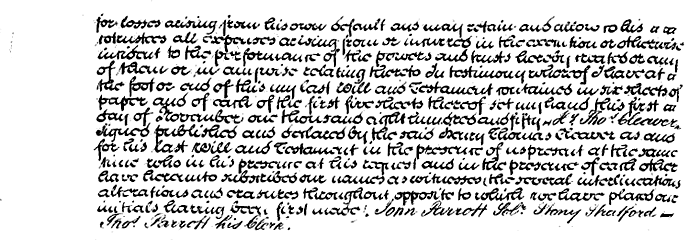 for losses arising from his own default and may retain and allow to his
cotrustees all expenses arising from or incurred in the execution or otherwise
incident to the performance of the powers and trusts hereby created or any
of them or in anywise relating thereto In testimony whereof I have at
the foot or end of this my last Will and Testament contained in six sheets of
paper and of each of the first five sheets thereof set my hand this first
day of November one thousand eight hundred and fifty – Hy. Thos. Cleaver –
signed published and declared by the said Henry Thomas Cleaver as and
for his last Will and Testament in the presence of us present at the same
time who in his presence at his request and in the presence of each other
have hereunto subscribed our names as witnesses, the several interlineations
alterations and erasures throughout opposite to which we have placed our
initials having been first made. John Parrott Solr. Henry Stratford –
Thos. Parrott his Clerk.